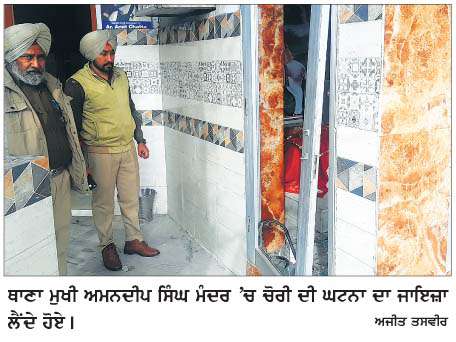 Ar. Amit Chatta
ਥਾਣਾ ਮੁਖੀ ਅਮਨਦੀਪ ਸਿੰਘ ਮੰਦਰ 'ਚ ਚੋਰੀ ਦੀ ਘਟਨਾ ਦਾ ਜਾਇਜ਼ਾ
ਲੈਂਦੇ ਹੋਏ। ਅਜੀਤ ਤਸਵੀਰ